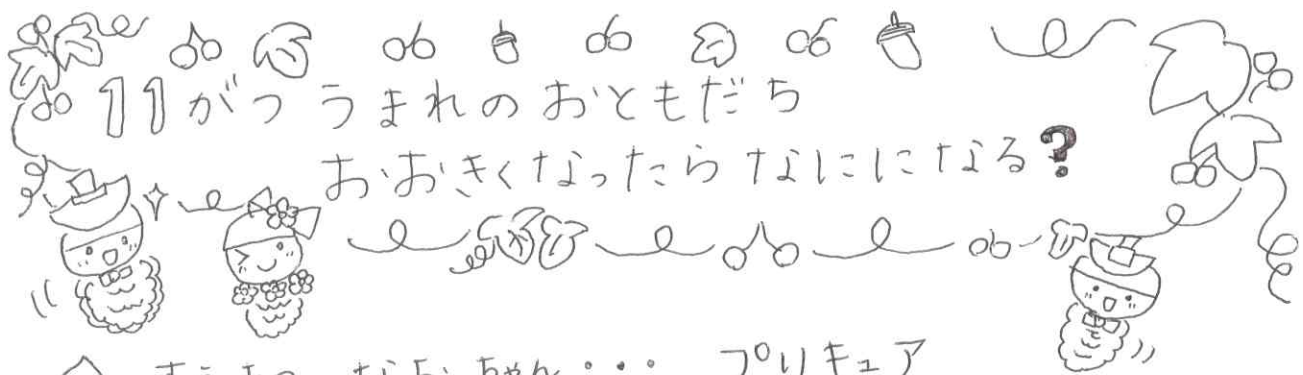 11がつ うまれの おともだち
おおきくなったら なにになる?
ちゃん・・・ プリキュア